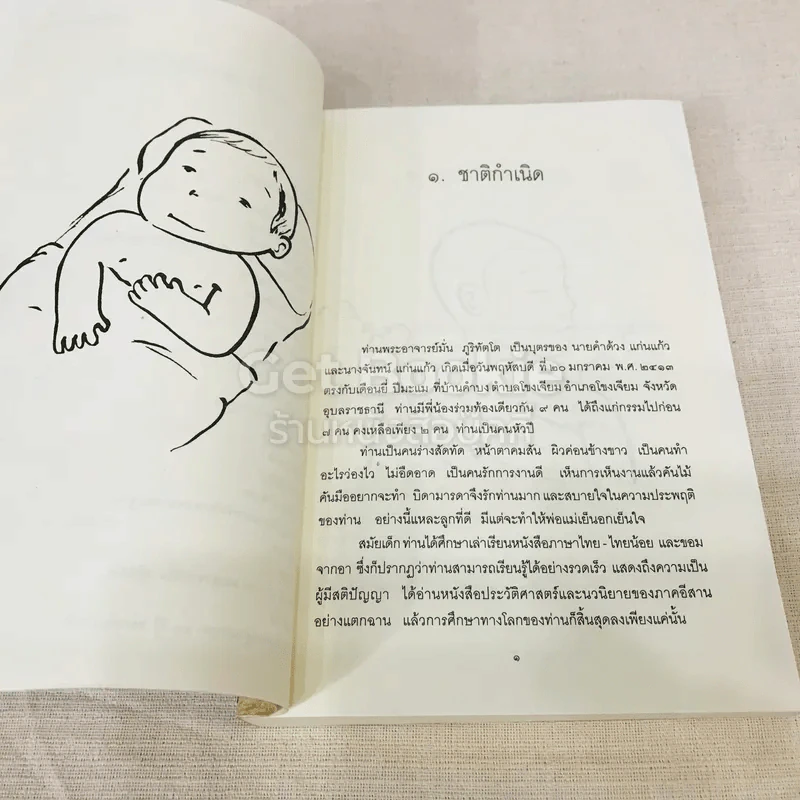 ๑. ชาติกำเนิด
ท่านพระอาจารย์มั่น ภูริทัตโต เป็นบุตรของ นายคำด้วง แก่นแก้ว
และนางจันทน์ แก่นแก้ว เกิดเมื่อวันพฤหัสบดี ที่ ๒๐ มกราคม พ.ศ. ๒๔๑๓
ตรงกับเดือนยี่ ปีมะแม ที่บ้านคำบง ตำบลโขงเจียม อำเภอโขงเจียม จังหวัด
อุบลราชธานี ท่านมีพี่น้องร่วมท้องเดียวกัน ๙ คน ได้ถึงแก่กรรมไปก่อน
๗ คน คงเหลือเพียง ๒ คน ท่านเป็นคนหัวปี
ท่านเป็นคนร่างสัดทัด หน้าตาคมสัน ผิวค่อนข้างขาว เป็นคนทำ
อะไรว่องไว ไม่อืดอาด เป็นคนรักการงานดี เห็นการเห็นงานแล้วคันไม้
คันมืออยากจะทำ บิดามารดาจึงรักท่านมาก และสบายใจในความประพฤติ
ของท่าน อย่างนี้แหละลูกที่ดี มีแต่จะทำให้พ่อแม่เย็นอกเย็นใจ
สมัยเด็ก ท่านได้ศึกษาเล่าเรียนหนังสือภาษาไทย-ไทยน้อย และขอม
จากอา ซึ่งก็ปรากฏว่าท่านสามารถเรียนรู้ได้อย่างรวดเร็ว แสดงถึงความเป็น
ผู้มีสติปัญญา ได้อ่านหนังสือประวัติศาสตร์และนวนิยายของภาคอีสาน
อย่างแตกฉาน แล้วการศึกษาทางโลกของท่านก็สิ้นสุดลงเพียงแค่นั้น
๑
Get Books
ร้านหนังสือขายดี